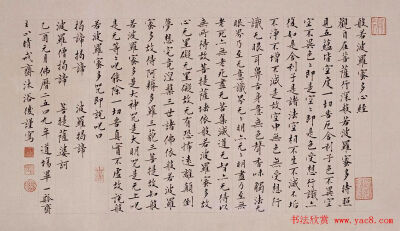 般若波羅蜜多心經
觀自在菩薩行深般若波羅蜜多時照
見五蘊皆空度一切苦厄舍利子色不異
空空不異色色即是空空即是色受想行識亦
復如是舍利子是諸法空相不生不滅不垢
不淨不增不減是故空中無色無受想行
識無眼耳鼻舌身意無色聲香味觸法無
眼界乃至無意識界無無明亦無無明盡乃至無
老死亦無老死盡無苦集滅道無智亦無得以
無所得故菩提薩埵依般若波羅蜜多故
心無罣礙無罣礙故無有恐怖遠離顛倒
夢想究竟涅槃三世諸佛依般若波羅
蜜多故得阿耨多羅三藐三菩提故知般
若波羅蜜多是大神咒是大明咒是無上咒
是無等等咒能除一切苦真實不虛故說般
若波羅蜜多咒即說咒曰
波羅揭諦 波羅揭諦
波羅僧揭諦 菩提薩婆訶
乙酉元月佛曆二五四九年道場畢一齡齋
主人時戒齋沐浴後謹寫
书法欣赏
www.yac8.com